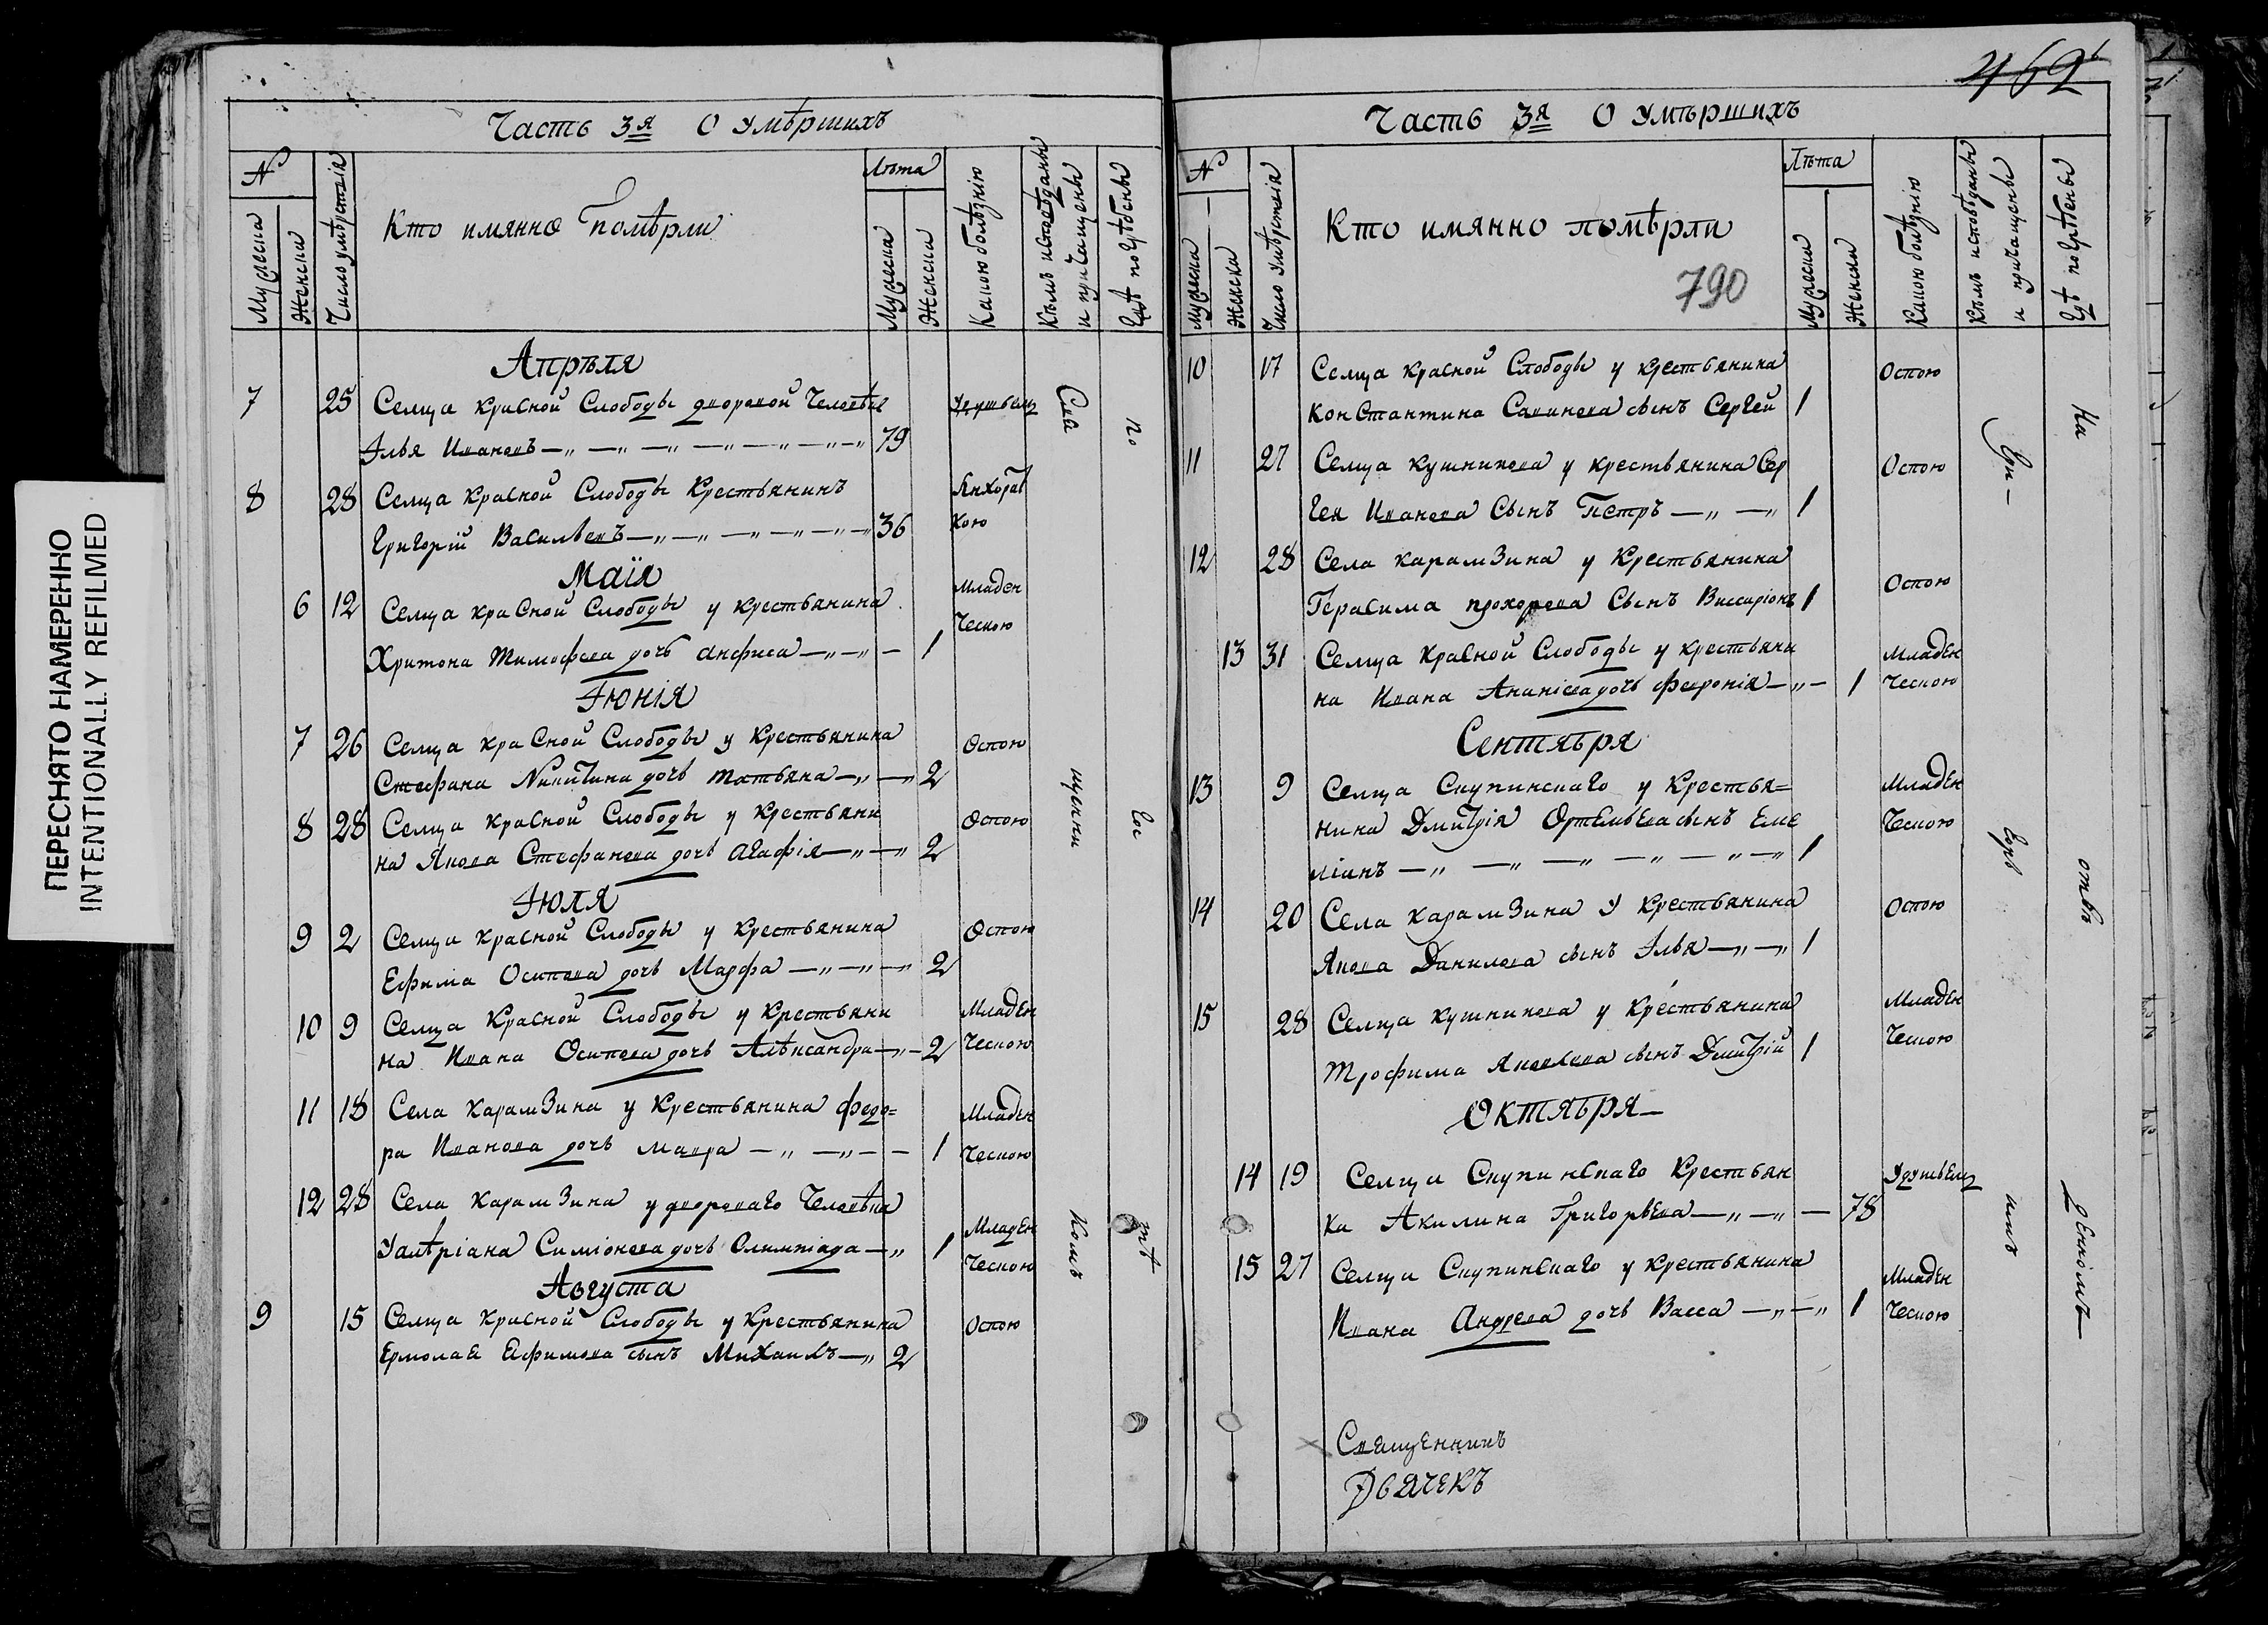 ПЕРЕСНЯТО НАМЕРЕННО
INTENTIONALLY REFILMED
Часть 3я О умѣршихъ
№
Мужеска
Женска
Число умѣртвія
Кто имянно помѣрли
Лѣта
Мужеска
Женска
Какою болѣзнію
Кѣмъ исповѣданы
и причащены
Гдѣ погрѣбены
Апрѣля
7 25 Селца Красной Слободы дворовой Человѣкъ
Илья Ивановъ 79
8 28 Селца Красной Слободы Крестьянинъ
Григорій Васильевъ 36
Маія
6 12 Селца Красной Слободы у крестьянина Младен
Харитона Тимофеева дочь Анфиса 1 ческою
Іюнія
7 26 Селца Красной Слободы у Крестьянина Оспою
Стефана Никитина дочь Татьяна 2
8 28 Селца Красной Слободы у Крестьяни Оспою
на Якова Стефанова дочь Агафія 2
Іюля
9 2 Селца Красной Слободы у Крестьянина Оспою
Ефима Осипова дочь Марфа 2
10 9 Селца Красной Слободы у Крестьяни Младен
на Ивана Осипова дочь Алѣксандра 2 ческою
11 18 Села Карамзина у Крестьянина Федо= Младен
ра Иванова дочь Мавра 1 ческою
12 28 Села Карамзина у двороваго Человѣка Младен
Симіонова дочь Олимпіада 1 ческою
Августа
9 15 Селца Красной Слободы у Крестьянина Оспою
Ермолая Ефимова сынъ Михаилъ 2
Свя
щенни
комъ
по
го
стѣ
469
Часть 3я О умѣршихъ
№
Мужеска
Женска
Число умѣртвія
Кто имянно помѣрли
790
Лѣта
Мужеска
Женска
Какою болѣзнію
Кѣмъ исповѣданы
и причащены
Гдѣ погрѣбены
10 17 Селца Красной Слободы у крестьянина Оспою
Константина Савинова сынъ Сергей 1
11 27 Селца Кушникова у крестьянина Сер Оспою
гея Иванова Сынъ Петръ 1
12 28 Села Карамзина у Крестьянина Оспою
Герасима Прохорова Сынъ Виссаріонъ 1
13 31 Селца Красной Слободы у крестьяни Младен
на Ивана Ананіева дочь Февронія 1 ческою
Сентября
13 9 Селца Скупинскаго у Крестья= Младен
нина Дмитрія Ортемьева сынъ Еме ческою
ліанъ 1
14 20 Села Карамзина у Крестьянина Оспою
Якова Данилова сынъ Илья 1
15 28 Селца Кушникова у Крестьянина Младен
Трофима Яковлева сынъ Дмитрій 1 ческою
Октября
14 19 Селца Скупинскаго Крестьян
ка Акилина Григорьева 78
15 27 Селца Скупинскаго у Крестьянина Младен
Ивана Андреева дочь Васса 1 ческою
Гри-
горь
На
отвѣ
денномъ
Священникъ
Дьячекъ